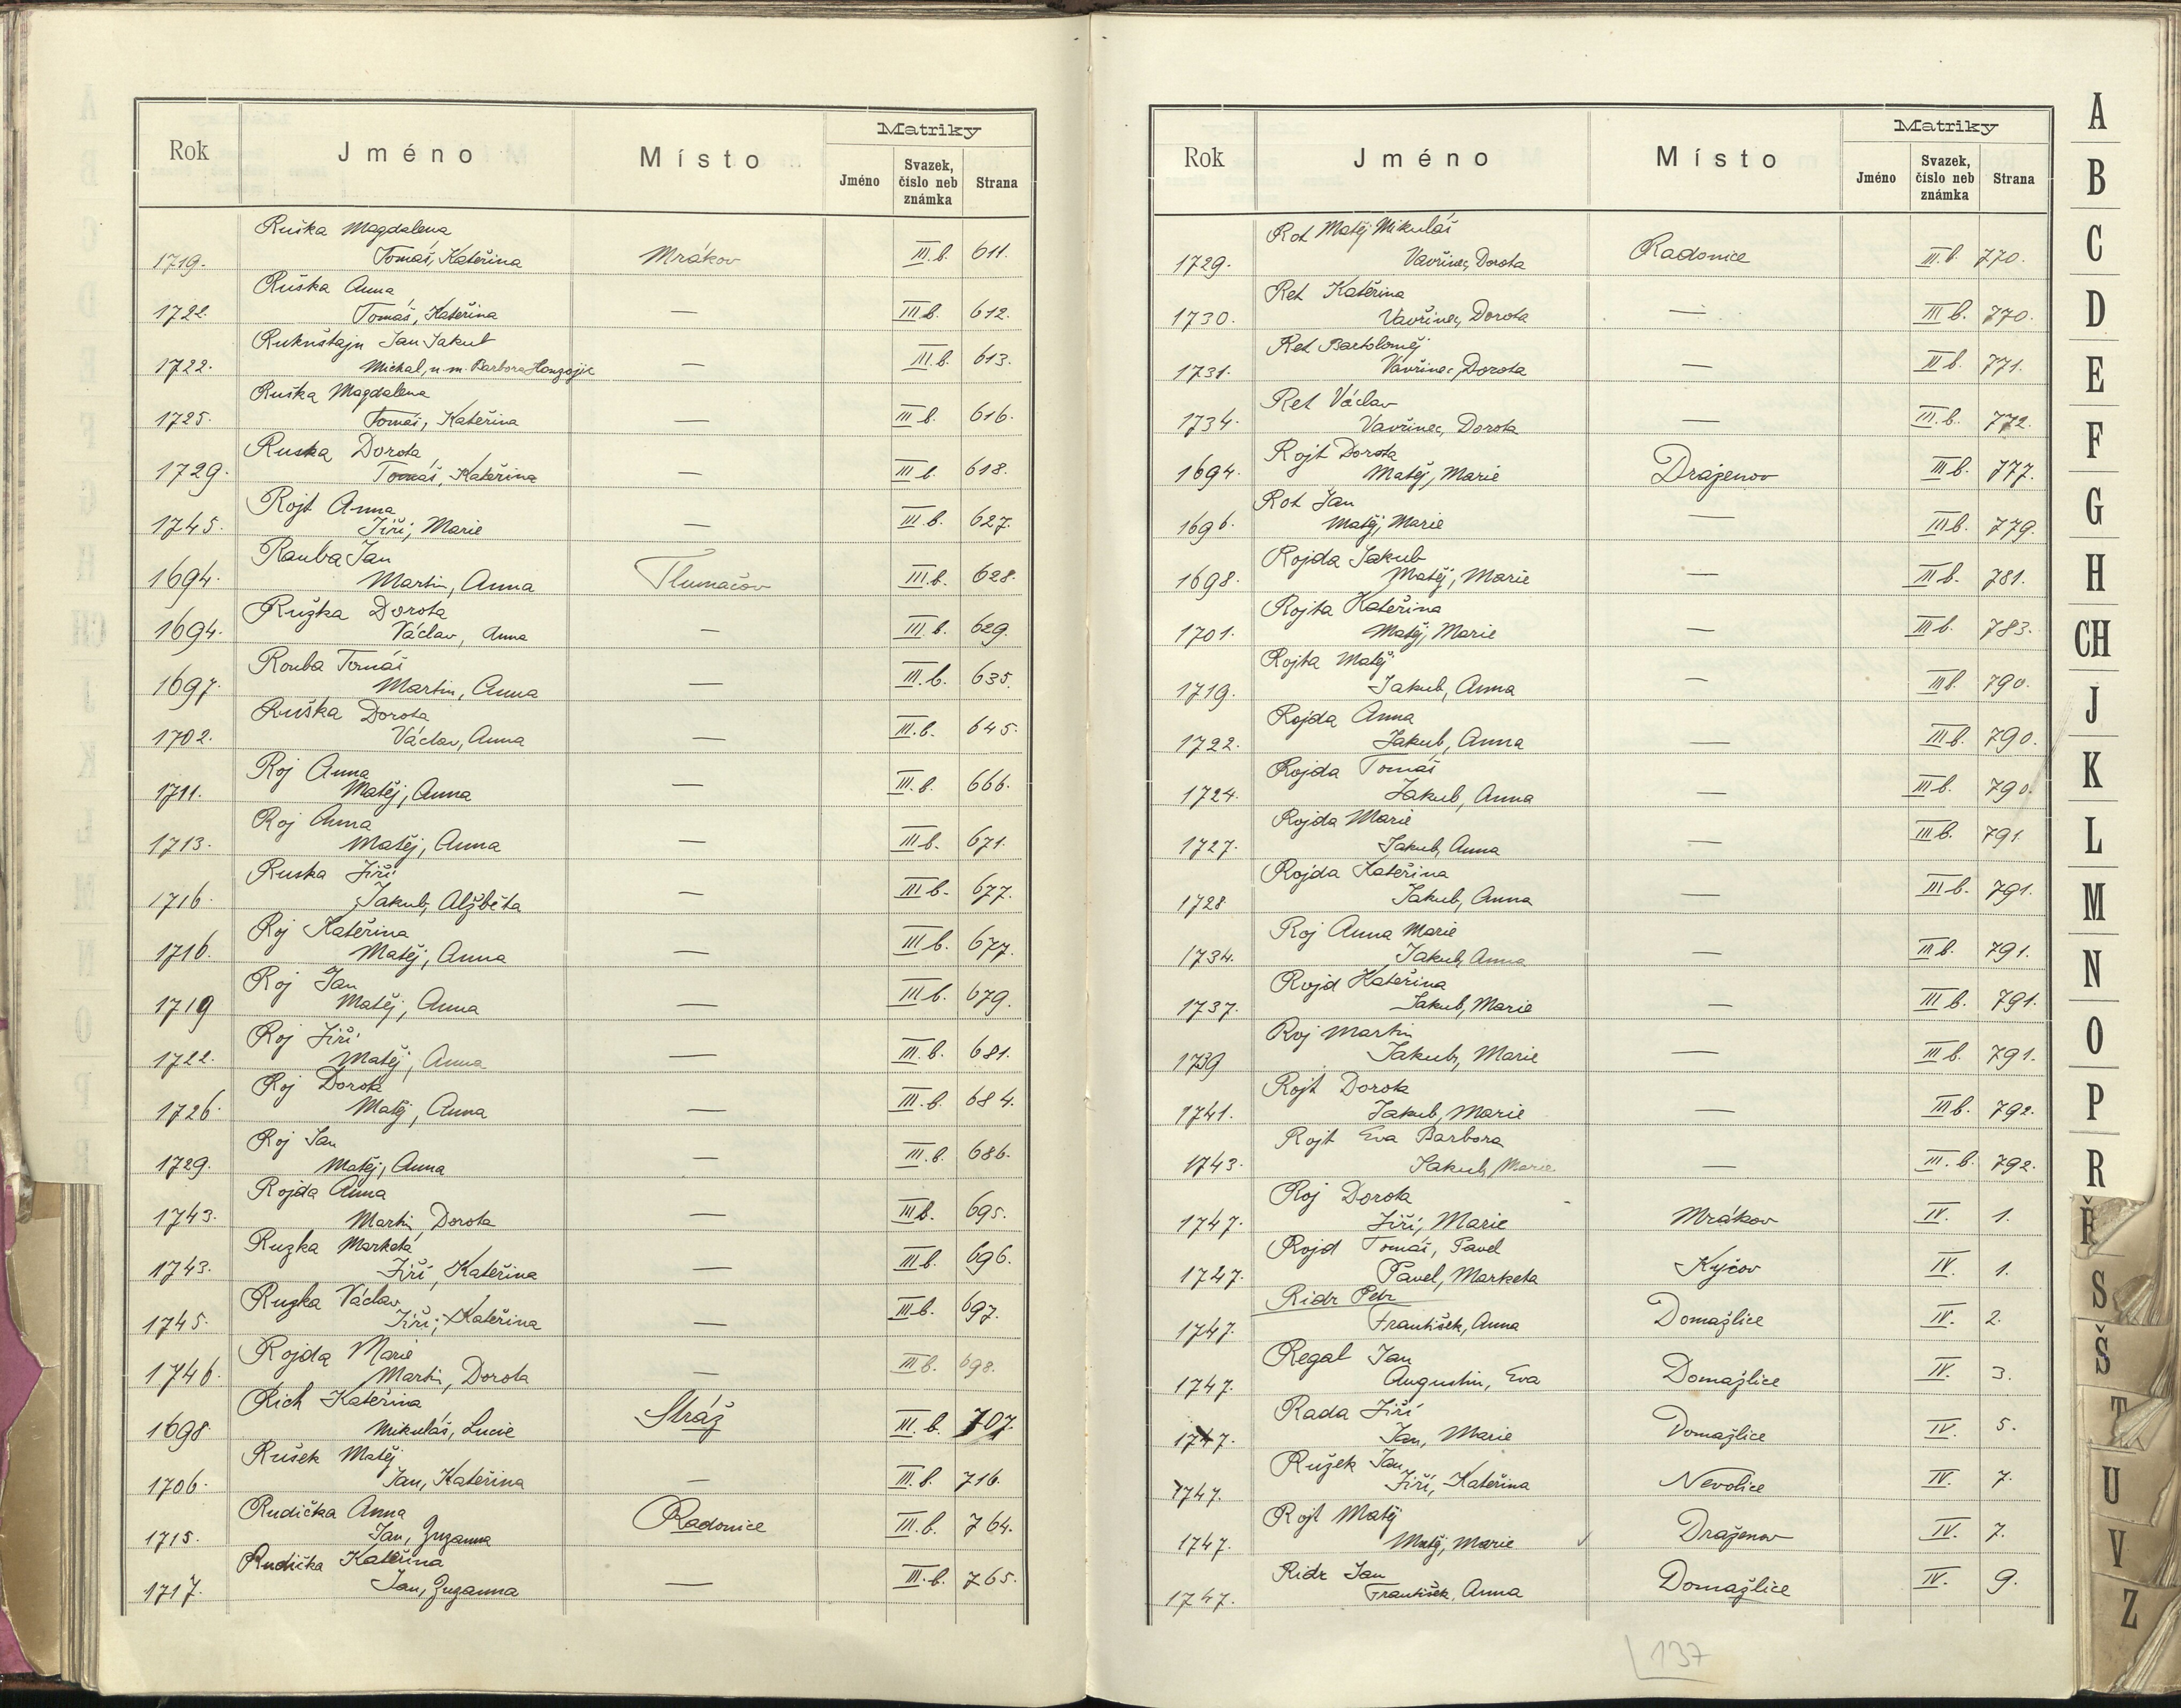 Matriky
Rok Jméno Místo Jméno Svazek, číslo neb známka Strana
Ruška Magdalena
1719. Tomáš, Kateřina Mrákov III.b. 611.
Ruška Anna
1722. Tomáš, Kateřina — III b. 612.
Rukuštajn Jan Jakub
1722. Michal, n. m. Barbora — III.b. 613.
Ruška Magdalena
1725. Tomáš, Kateřina — III b. 616.
Ruska Dorota
1729. Tomáš, Kateřina — III b. 618.
Rojt Anna
1745. Jiří, Marie — III b. 627.
Rauba Jan
1694. Martin, Anna Tlumačov III.b. 628.
Ružka Dorota
1694. Václav, Anna — III. b. 629.
Rouba Tomáš
1697. Martin, Anna — III.b. 635.
Ruška Dorota
1702. Václav, Anna — III.b. 645.
Roj Anna
1711. Matěj, Anna — III.b. 666.
Roj Anna
1713. Matěj, Anna — III b. 671.
Ruska Jiří
1716. Jakub, Alžběta — III b. 677.
Roj Kateřina
1716. Matěj, Anna — III b. 677.
Roj Jan
1719 Matěj, Anna — III b. 679.
Roj Jiří
1722. Matěj, Anna — III.b. 681.
Roj Dorota
1726. Matěj, Anna — III.b. 684.
Roj Jan
1729. Matěj, Anna — III.b. 686.
Rojda Anna
1743. Martin, Dorota — III b. 695.
Ruzka Marketa
1743. Jiří, Kateřina — III b. 696.
Ruzka Václav
1745. Jiří, Kateřina — III b. 697.
Rojda Marie
1746. Martin, Dorota — III b. 698.
Rich Kateřina
1698. Mikuláš, Lucie Stráž III. b. 707.
Rušek Matěj
1706. Jan, Kateřina — III.b. 716.
Rudička Anna
1715. Jan, Zuzanna Radonice III.b. 764.
Rudička Kateřina
1717. Jan, Zuzanna — III.b. 765.
Matriky
Rok Jméno Místo Jméno Svazek, číslo neb známka Strana
Rot Matěj Mikuláš
1729. Vavřinec, Dorota Radonice III.b. 770.
Ret Kateřina
1730. Vavřinec, Dorota — III b. 770.
Ret Bartoloměj
1731. Vavřinec, Dorota — III b. 771.
Ret Václav
1734. Vavřinec, Dorota — III.b. 772.
Rojt Dorota
1694. Matěj, Marie Draženov III b. 777.
Rot Jan
1696. Matěj, Marie — III b. 779.
Rojda Jakub
1698. Matěj, Marie — III b. 781.
Rojta Kateřina
1701. Matěj, Marie — III b. 783.
Rojta Matěj
1719. Jakub, Anna — III b. 790.
Rojda Anna
1722. Jakub, Anna — III b. 790.
Rojda Tomáš
1724. Jakub, Anna — III b. 790.
Rojda Marie
1727. Jakub, Anna — III b. 791
Rojda Kateřina
1728 Jakub, Anna — III b. 791.
Roj Anna Marie
1734. Jakub, Anna — III b. 791.
Rojd Kateřina
1737. Jakub, Marie — III b. 791.
Roj Martin
1739 Jakub, Marie — III b. 791.
Rojt Dorota
1741. Jakub, Marie — III b. 792.
Rojt Eva Barbora
1743. Jakub, Marie — III. b. 792.
Roj Dorota
1747. Jiří, Marie Mrákov IV. 1.
Rojd Tomáš, Pavel
1747. Pavel, Marketa Kyčov IV. 1.
Ridr Petr
1747. František, Anna Domažlice IV. 2.
Regal Jan
1747. Augustin, Eva Domažlice IV. 3.
Rada Jiří
1747. Jan, Marie Domažlice IV. 5.
Ružek Jan
1747. Jiří, Kateřina Nevolice IV. 7.
Rojt Matěj
1747. Matěj, Marie Draženov IV. 7.
Ridr Jan
1747. František, Anna Domažlice IV. 9.
137
A
B
C
D
E
F
G
H
CH
J
K
L
M
N
O
P
R
Ř
S
Š
T
U
V
Z